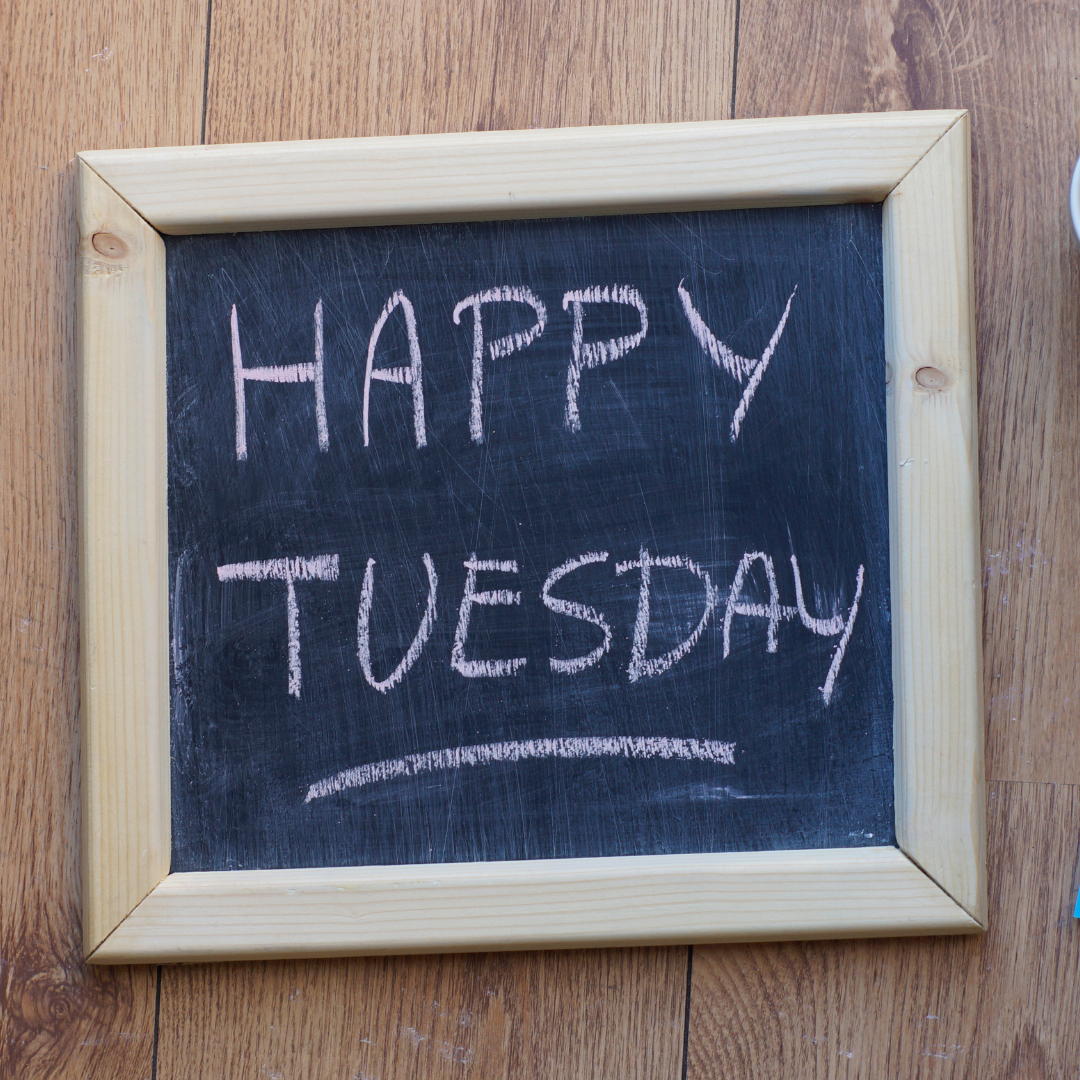 HAPPY
TUESDAY